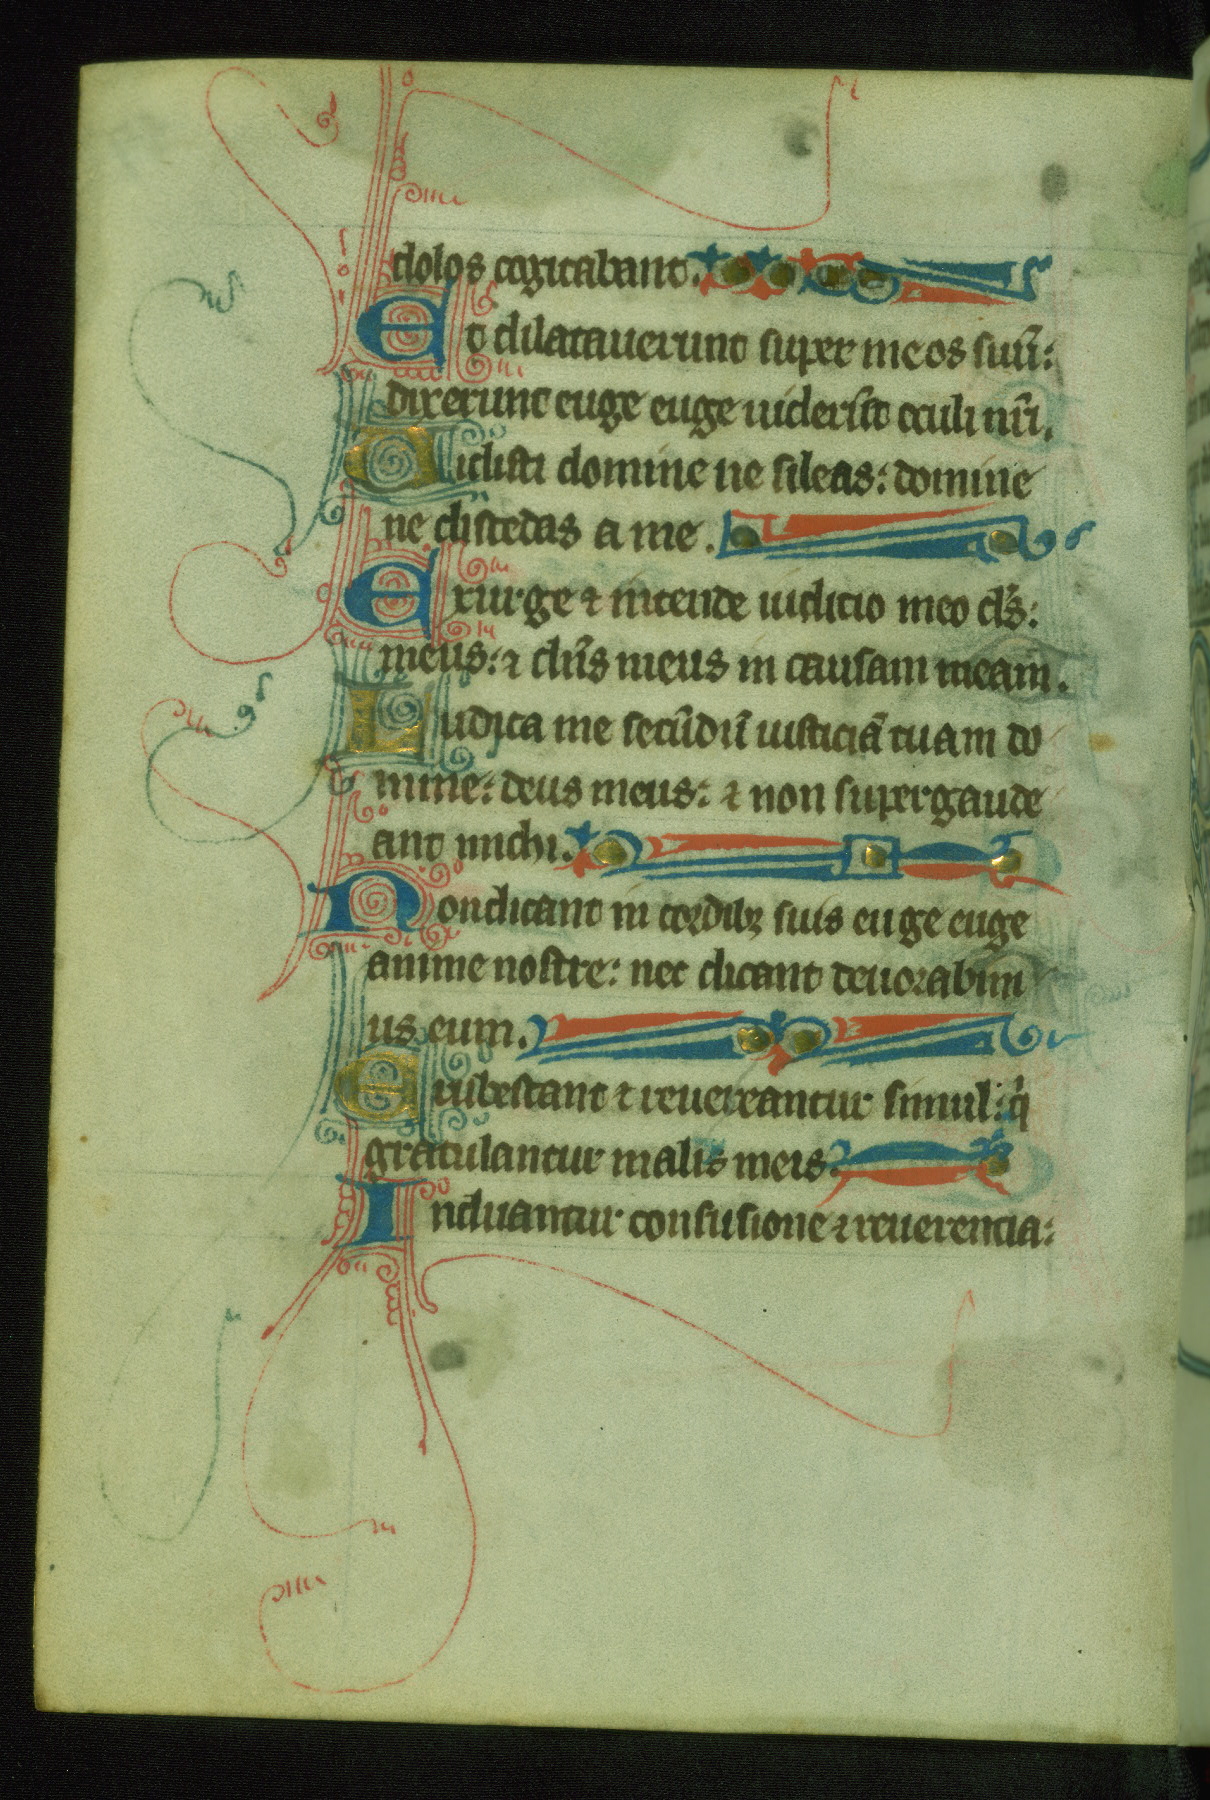 dolos cogitabant.
Et dilatauerunt super me os suū:
dixerunt euge euge uiderūt oculi nr̄i.
Uidisti domine ne sileas: domine
ne discedas a me.
Exurge ⁊ intende iudicio meo ds̄:
meus: ⁊ dn̄s meus in causam meam.
Iudica me secūdū iusticiā tuam do
mine: deus meus: ⁊ non supergaude
ant michi.
Non dicant in cordibꝫ suis euge euge
anime nostre: nec dicant deuorabim
us eum.
Erubescant ⁊ reuereantur simul: qͥ
gratulantur malis meis.
Induantur confusione ⁊ reuerencia: